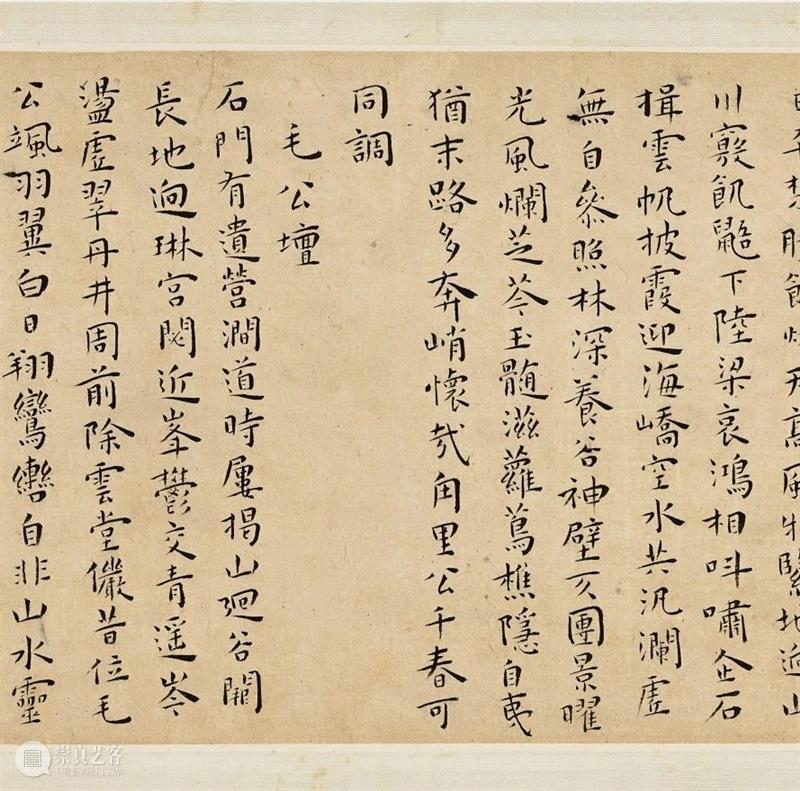 高風物緊地山
川竅飢鼯下陸梁哀鴻相叫嘯企石
揖雲帆披霞迎海嶠空水共汎瀾虛
無自叅照林深養谷神壁團景曜
光風爛芝苓玉髓滋蘿蔦樵隱自夷
猶末路多奔峭懷哉甪里公千春可
同調
毛公壇
石門有遺營澗道時屢揭山廻谷開
長地逈琳宮閟近峯鬱交青遥岑
盪虛翠丹井周前除雲堂儼昔位毛
公颯羽翼白日翔鸞轡自非山水靈
崇真艺客
TRUEART.COM